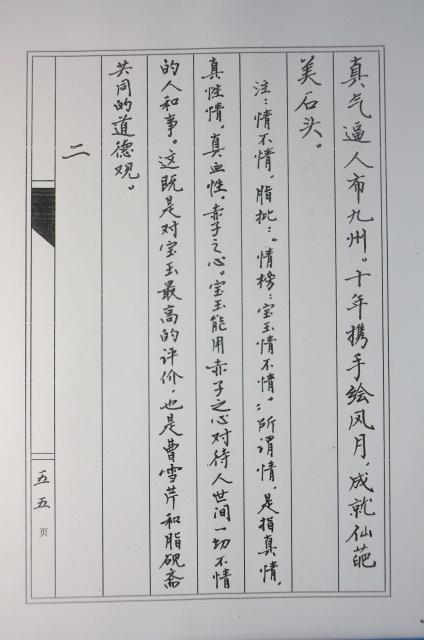 真气逼人布九州。十年携手绘风月，成就仙葩
美石头。
注：情不情，脂批：“情榜：宝玉情不情”：所谓情，是指真情，
真性情，真血性，赤子之心。宝玉能用赤子之心对待人世间一切不情
的人和事。这既是对宝玉最高的评价，也是曹雪芹和脂砚斋
共同的道德观。
二
五五页